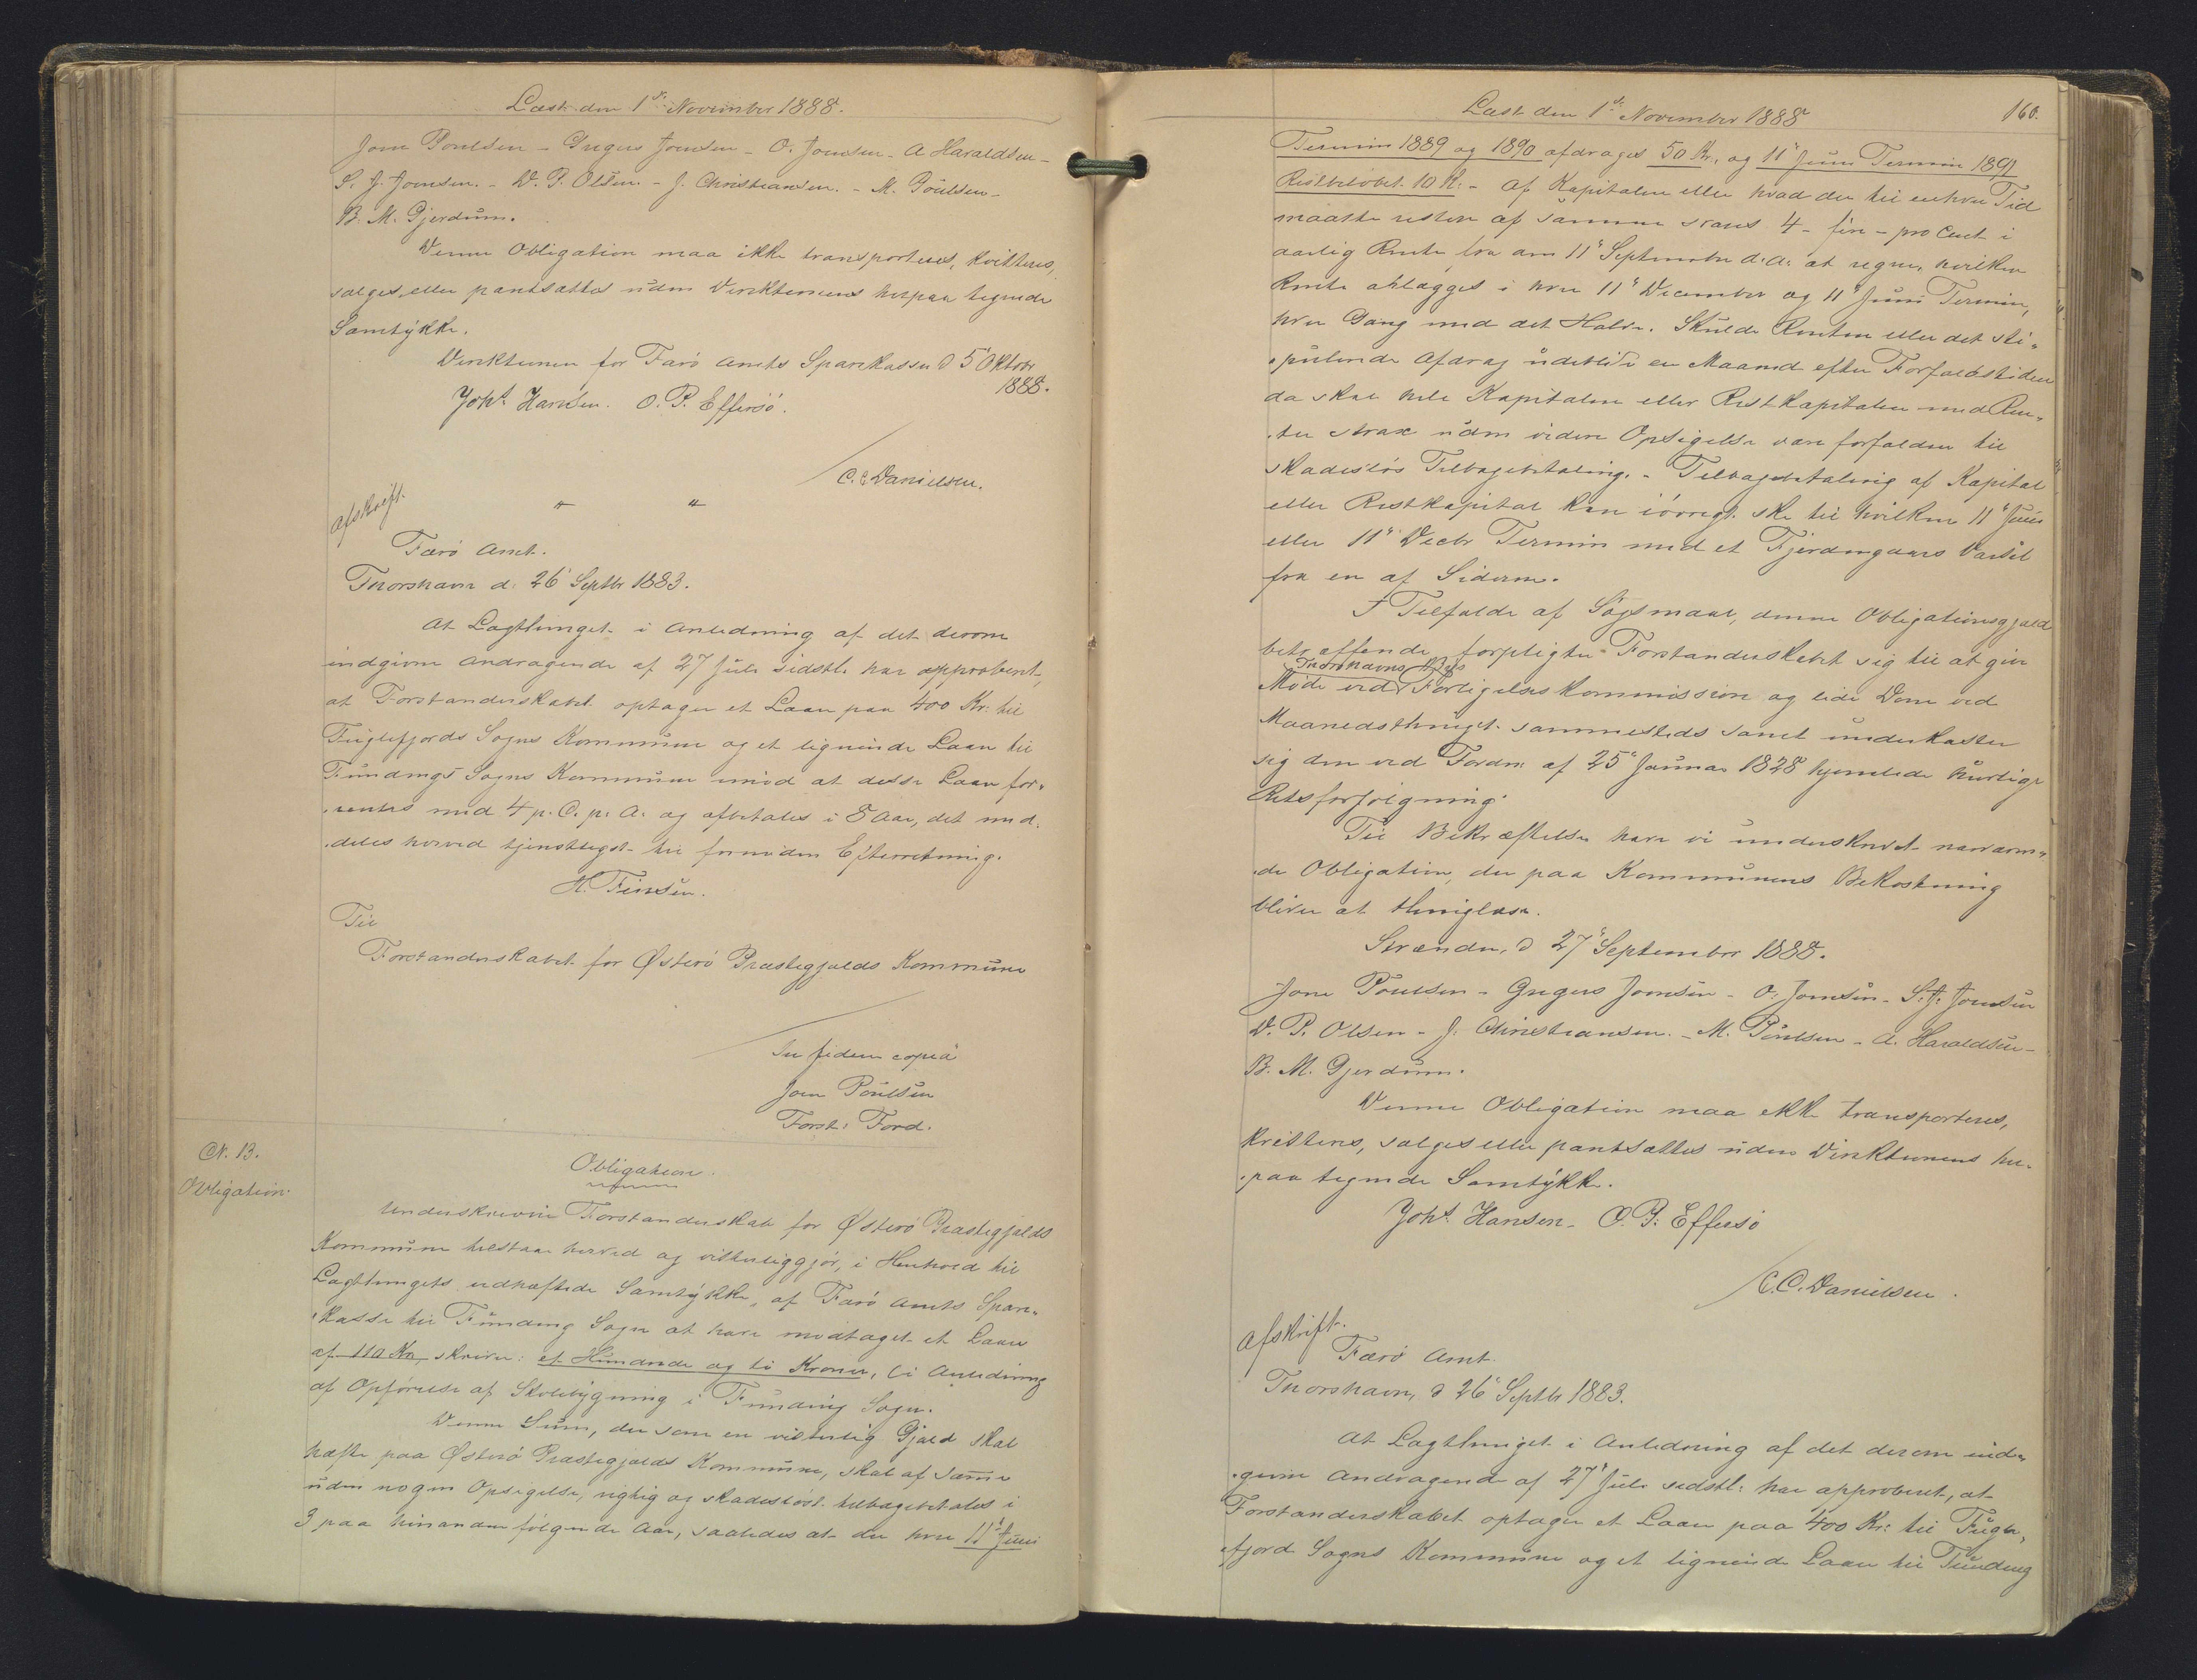 Læst den 1ste November 1888.
Jone Poulsen - Gregers Joensen - O. Joensen - A Haraldsen -
S. J. Joensen. - D. P. Olsen. - J. Christiansen. - M. Poulsen -
B. M. Gjerdum.
Denne Obligation maa ikke transporteres, kvitteres,
sælges eller pantsættes uden Direktionens herpaa tegnede
Samtykke.
Direktionen for Færø Amts Sparekasse d 5' Oktobr
1888.
Johs. Hansen. O. P. Effersö.
C. C. Danielsen.
Afskrift.
" "
Færö Amt.
Thorshavn d. 26' Septbr 1883.
At Lagthinget i Anledning af det derom
indgivne Andragende af 27 Juli sidstl. har approberet,
at Forstanderskabet optager et Laan paa 400 Kr: til
Fuglefjords Sogns Kommune og et lignende Laan til
Fundings Sogns Kommune imod at disse Laan for-
rentes med 4 p. C. p. A. og afbetales i 8 Aar, det med-
deles herved tjenstligst til fornøden Efterretning.
H. Finsen.
Til
Forstanderskabet for Østerö Præstegjælds Kommune
In fidem copiæ
Joen Poulsen
Forst. Ford.
N. 13.
Obligation.
Obligation.
Underskrevne Forstanderskab for Østerö Præstegjælds
Kommune tilstaar herved og vitterliggjør, i Henhold til
Lagthingets vedhæftede Samtykke, af Færö Amts Spare-
kasse til Funding Sogn at have modtaget et Laan
af 110 Kr, skriver: et Hundrede og ti Kroner, (i Anledning
af Opførelse af Skolebygning i Funding Sogn.
Denne Sum, der som en vitterlig Gjæld skal
hæfte paa Østerö Præstegjælds Kommune, skal af samme
uden nogen Opsigelse, rigtig og skadesløst tilbagebetales i
3 paa hinanden følgende Aar, saaledes at der hver 11' Juni
Læst den 1ste November 1888
160.
Termin 1889 og 1890 afdrages 50 Kr., og 11" Juni Termin 1891
Restbeløbet 10 K. - Af Kapitalen eller hvad der til enhver Tid
maatte restere af samme svares 4 - fire - pro Cent i
aarlig Rente fra den 11" September d: A: at regne, hvilken
Rente erlægges i hver 11" December og 11" Juni Termin,
hver Gang med det Halve. Skulde Renten eller det sti-
pulerede Afdrag udeblive en Maaned efter Forfaldstiden
da skal hele Kapitalen eller Restkapitalen med Ren-
ter strax uden videre Opsigelse være forfalden til
skadesløs Tilbagebetaling. - Tilbagebetaling af Kapital
eller Restkapital kan iøvrigt ske til hvilken 11" Juni
eller 11" Decbr Termin med et Fjerdingaars Varsel
fra en af Siderne.
I Tilfælde af Søgsmaal, denne Obligationsgjæld
betræffende, forpligter Forstanderskabet sig til at give
Thorshavns Byes
Møde ved Forligelseskommission og lide Dom ved
Maanedsthinget sammesteds samt underkaster
sig den ved Fordn. af 25" Januar 1828 hjemlede hurtige
Retsforfølgning.
Til Bekræftelse have vi underskrevet nærværen-
de Obligation, der paa Kommunens Bekostning
bliver at thinglæse.
Strænder, d 27" September 1888.
Jone Poulsen - Gregers Joensen - O. Joensen - S. J. Joensen
D. P. Olsen - J. Christiansen. - M. Poulsen - A. Haraldsen -
B. M. Gjerdum.
Denne Obligation maa ikke transporteres,
kvitteres, sælges eller pantsættes uden Direktionens her-
paa tegnede Samtykke.
Johs. Hansen - O. P. Effersö
C. C. Danielsen.
Afskrift.
Færö Amt.
Thorshavn, d 26" Septbr 1883.
At Lagthinget i Anledning af det derom ind-
givne Andragende af 27" Juli sidstl: har approberet, at
Forstanderskabet optager et Laan paa 400 Kr: til Fugle-
fjord Sogns Kommune og et lignende Laan til Funding